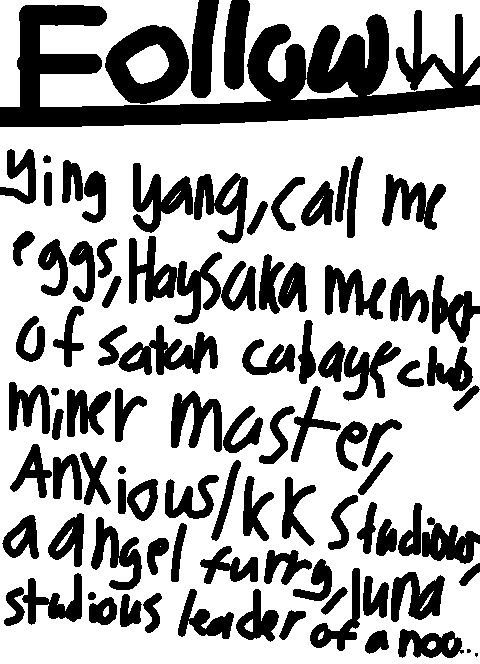 Follow↓↓
Ying yang, call me
eggs, Haysaka member
of satan cabage club,
miner master,
Anxious/KK Studious,
a angel furry, luna
studious leader of a noo...